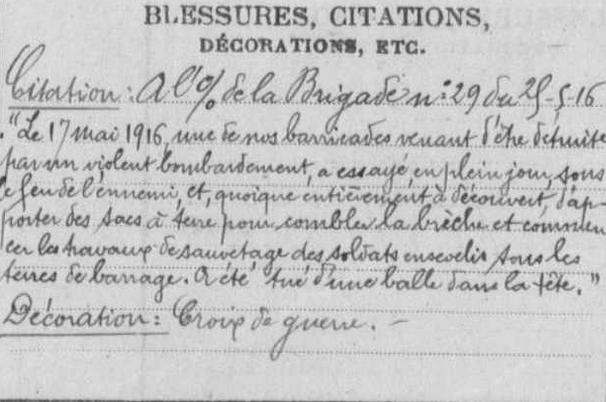 BLESSURES, CITATIONS,
DÉCORATIONS, ETC.
Citation: A l'O/ de la Brigade n° 29 du 25-5-16
"Le 17 mai 1916, une de nos barricades venant d'être détruite
par un violent bombardement, a essayé, en plein jour, sous
le feu de l'ennemi, et, quoique entièrement à découvert, d'ap-
porter des sacs à terre pour combler la brèche et commen
cer les travaux de sauvetage des soldats ensevelis sous les
terres de barrage. A été tué d'une balle dans la tête."
Décoration: Croix de guerre. -